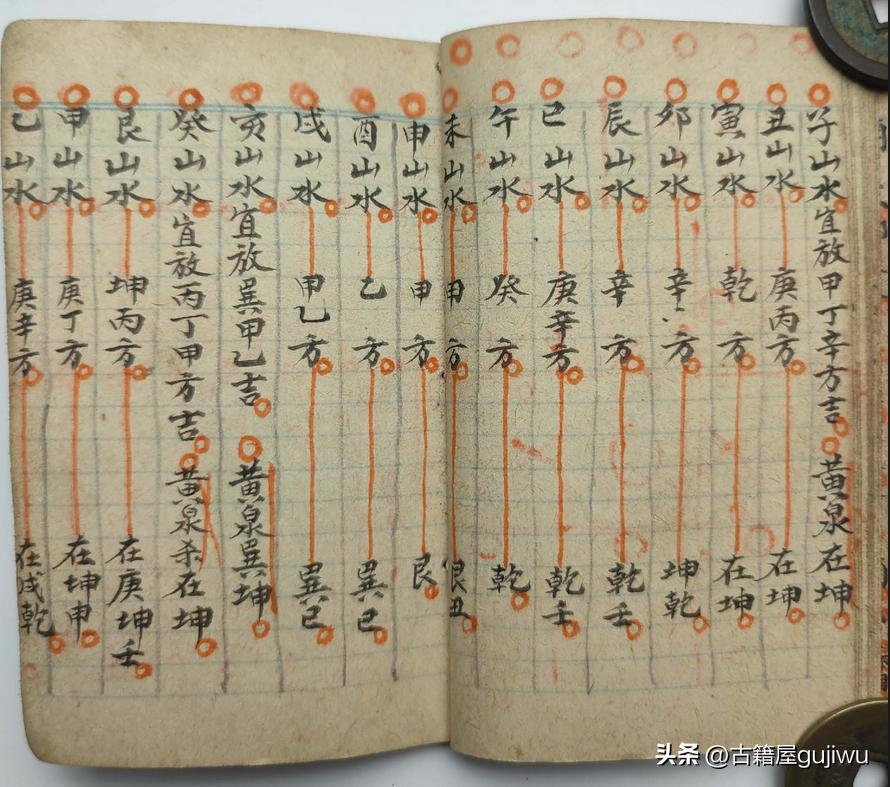 子山水宜放甲丁辛方吉 黄泉在坤
丑山水 庚丙方 在坤
寅山水 乾方 在坤
卯山水 辛方 坤乾
辰山水 辛方 乾壬
巳山水 庚辛方 乾壬
午山水 癸方 乾
未山水 甲方 艮丑
申山水 甲方 艮
酉山水 乙方 巽巳
戌山水 甲乙方 巽巳
亥山水宜放巽甲乙吉 黄泉巽坤
癸山水宜放丙丁甲方吉 黄泉杀在坤
艮山水 坤丙方 在庚坤壬
甲山水 庚丁方 在坤申
乙山水 庚辛方 在戌乾
头条 @古籍屋gujiwu